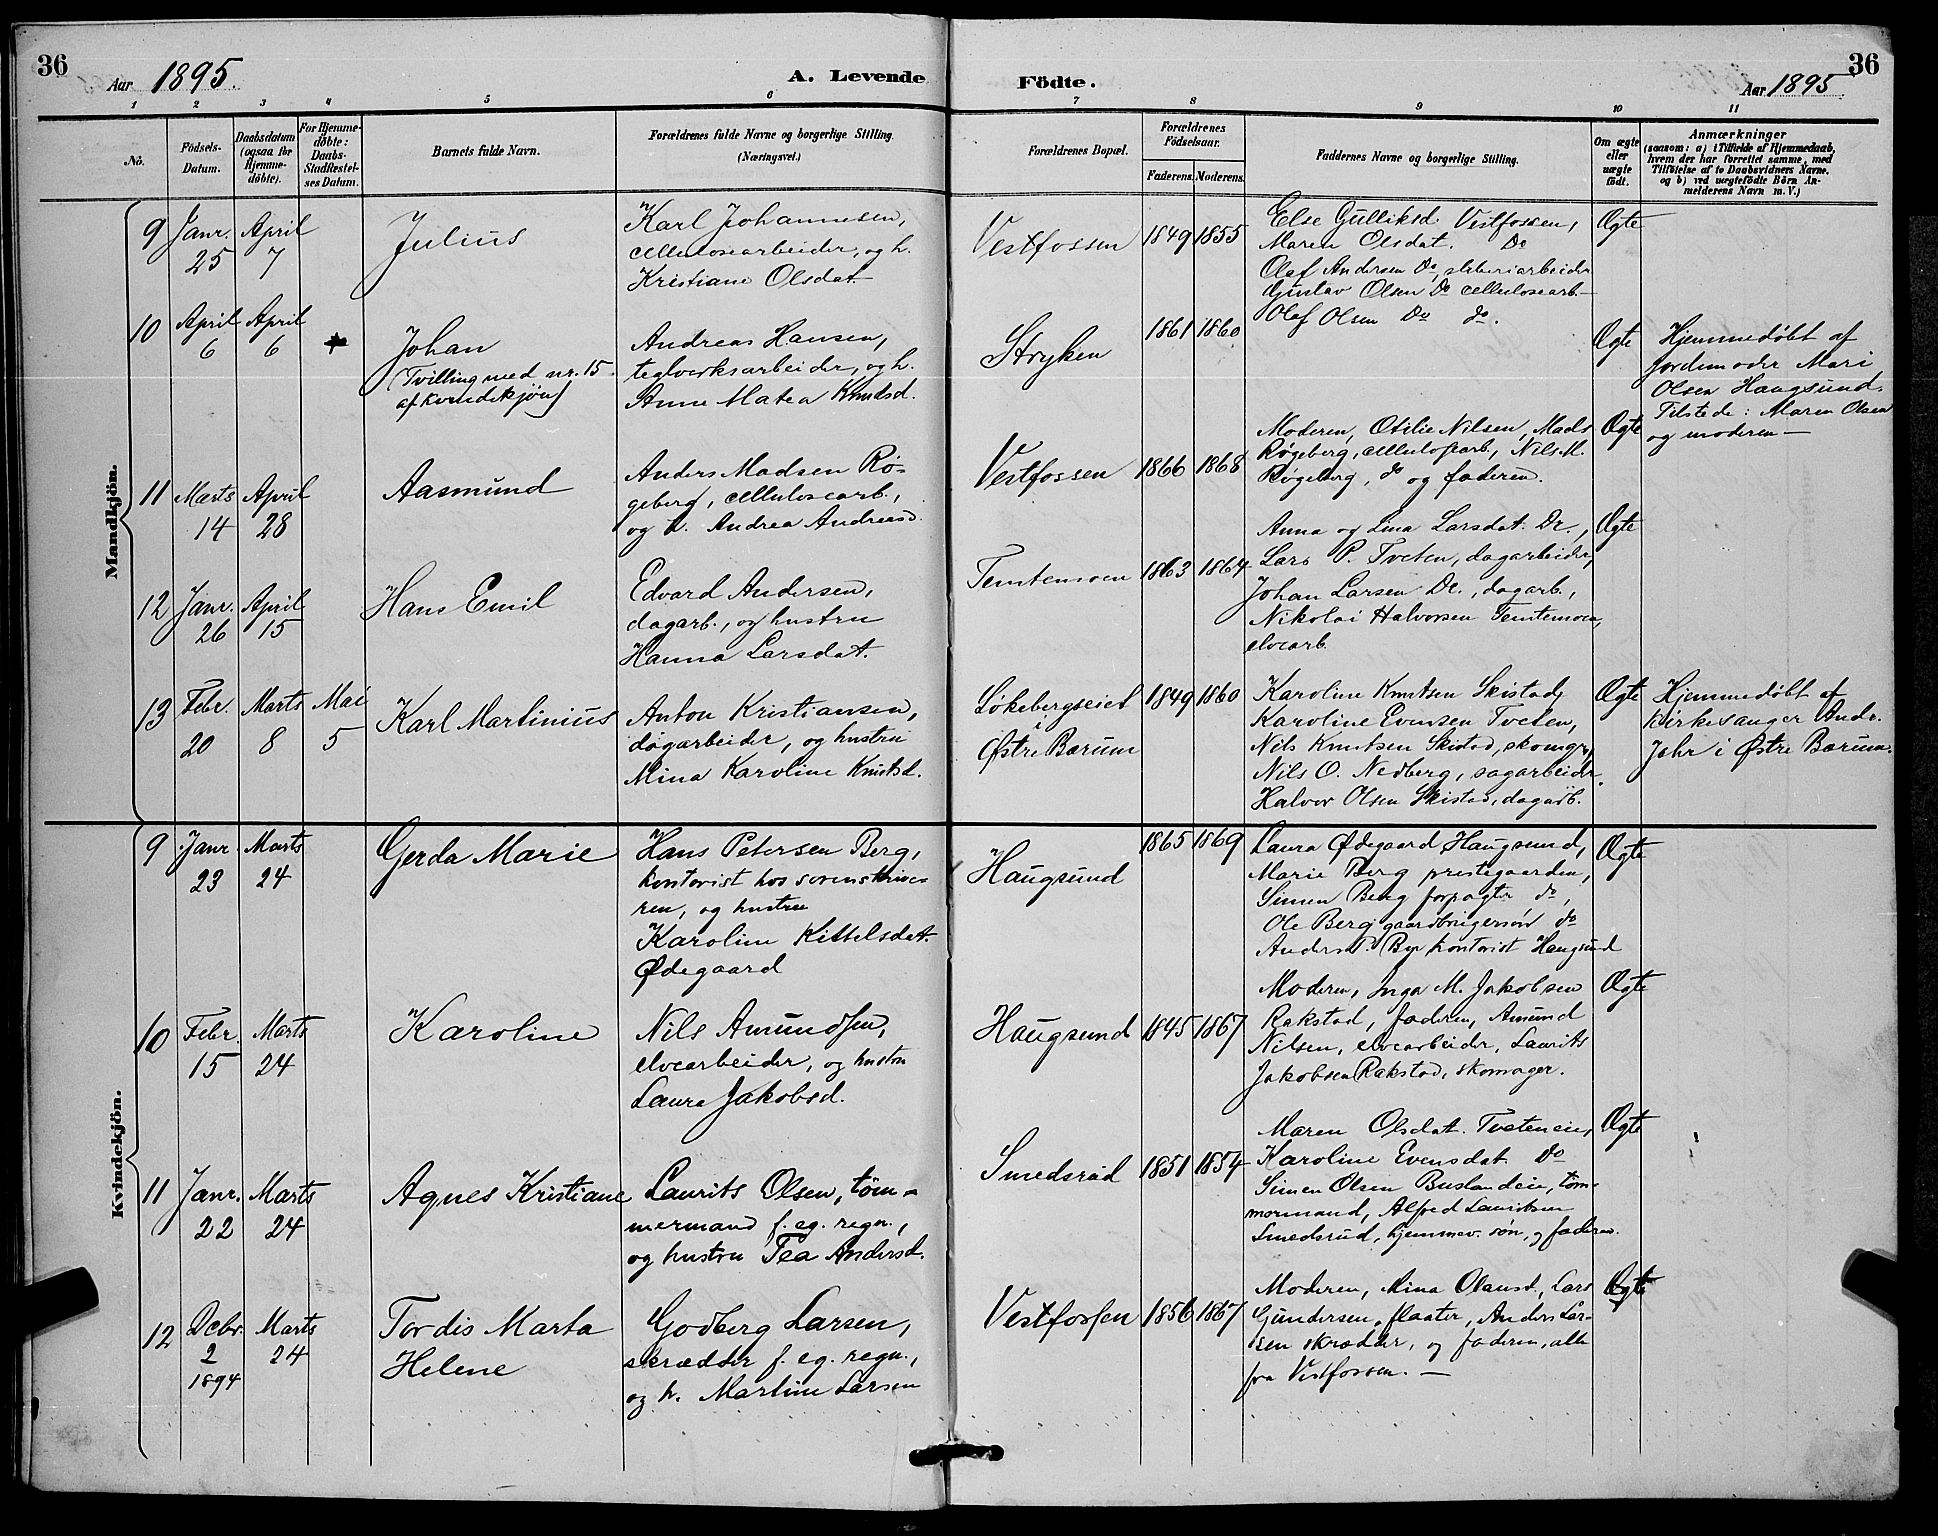 36
Aar 1895.
A. Levende
Födte.
Aar 1895.
36
1 2 3 4 5 6 7 8 9 10 11
No.
Födsels-
Datum.
Daabsdatum
(ogsaa for
Hjemme-
döbte).
For Hjemme-
döbte:
Daabs-
Stadfæstel-
ses Datum.
Barnets fulde Navn.
Forældrenes fulde Navne og borgerlige Stilling.
(Næringsvei.)
Forældrenes Bopæl.
Forældrenes
Födselsaar.
Faderens. Moderens.
Faddernes Navne og borgerlige Stilling.
Om ægte
eller
uægte
födt.
Anmærkninger
(saasom: a) i Tilfælde af Hjemmedaab,
hvem der har forrettet samme, med
Tilföielse af to Daabsvidners Navne.
og b) ved uægtefödte Börn An-
melderens Navn m. V.)
Mandkjön.
9 Janr. 25 April 7
Julius
Karl Johannesen,
cellulosearbeider, og h.
Kristiane Olsdat.
Vestfossen 1849 1855
Else Gulliksd. Vestfossen,
Maren Olsdat. Do
Olaf Andersen Do, sliberiarbeider
Gustav Olsen Do cellulosearb.
Olaf Olsen Do do.
Ægte
10 April 6 April 6
Johan
(Tvilling med nr. 15
af kvindekjøn)
Andreas Hansen,
teglverksarbeider, og h.
Anne Matea Knudsd.
Stryken 1861 1860
Ægte
Hjemmedøbt af
jordemoder Mari
Olsen Haugsund.
Tilstede: Maren Olsen
og moderen
11 Marts 14 April 28
Aasmund
Anders Madsen Rø-
geberg, cellulosearb.,
og h. Andrea Andreasd.
Vestfossen 1866 1868
Moderen, Otilie Nilsen, Mads
Røgeberg, cellulosearb., Nils M.
Røgeberg, do og faderen.
Ægte
12 Janr. 26 April 15
Hans Emil
Edvard Andersen,
dagarb., og hustru
Hanna Larsdat.
Temtemoen 1863 1864
Anna og Lina Larsdat. De.,
Lars P. Tveten, dagarbeider,
Johan Larsen De., dagarb.,
Nikolai Halvorsen Temtemoen,
elvearb.
Ægte
13 Febr. 20 Marts 8 Mai 5
Karl Martinius
Anton Kristiansen,
dagarbeider, og hustru
Mina Karoline Knutsd.
Løkebergseiet
i
Østre Bærum
1849 1860
Karoline Knutsen Skistad,
Karoline Evensen Tveten,
Nils Knutsen Skistad, skomgr,
Nils O. Nedberg, sagarbeider,
Halvor Olsen Skistad, dagarb.
Ægte
Hjemmedøbt af
kirkesanger Andr.
Jahr i Østre Bærum.
Kvindekjön.
9 Janr 23 Marts 24
Gerda Marie
Hans Petersen Berg,
kontorist hos sorenskrive-
ren, og hustru
Karoline Kittelsdat.
Ødegaard
Haugsund
1865 1869
Laura Ødegaard Haugsund,
Marie Berg prestegaarden,
Simen Berg forpagter do,
Ole Berg gaardbrugersøn do
Anders P. Bye kontorist Haugsund
Ægte
10 Febr. 15 Marts 24
Karoline
Nils Amundsen,
elvearbeider, og hustru
Laura Jakobsd.
Haugsund 1845 1867
Moderen, Inga M. Jakobsen
Rakstad, faderen, Amund
Nilsen, elvearbeider, Laurits
Jakobsen Rakstad, skomager.
Ægte
11 Janr. 22 Marts 24
Agnes Kristiane
Laurits Olsen, tøm-
mermand f. eg. regn.,
og hustru Tea Andersd.
Smedsrud 1851 1854
Maren Olsdat. Tveteneie,
Karoline Evensdat Do
Simen Olsen Buslandeie, tøm-
mermand, Alfred Lauritsen
Smedsrud, hjemmev. søn, og faderen.
Ægte
12 Debr. 2 1894 Marts 24
Tordis Marta
Helene
Godberg Larsen,
skrædder f. eg. regn.,
og h. Martine Larsen
Vestfossen 1856 1867
Moderen, Mina Olausd., Lars
Gundersen, fløater, Anders Lar-
sen skrædder, og faderen, alle
fra Vestfossen.
Ægte